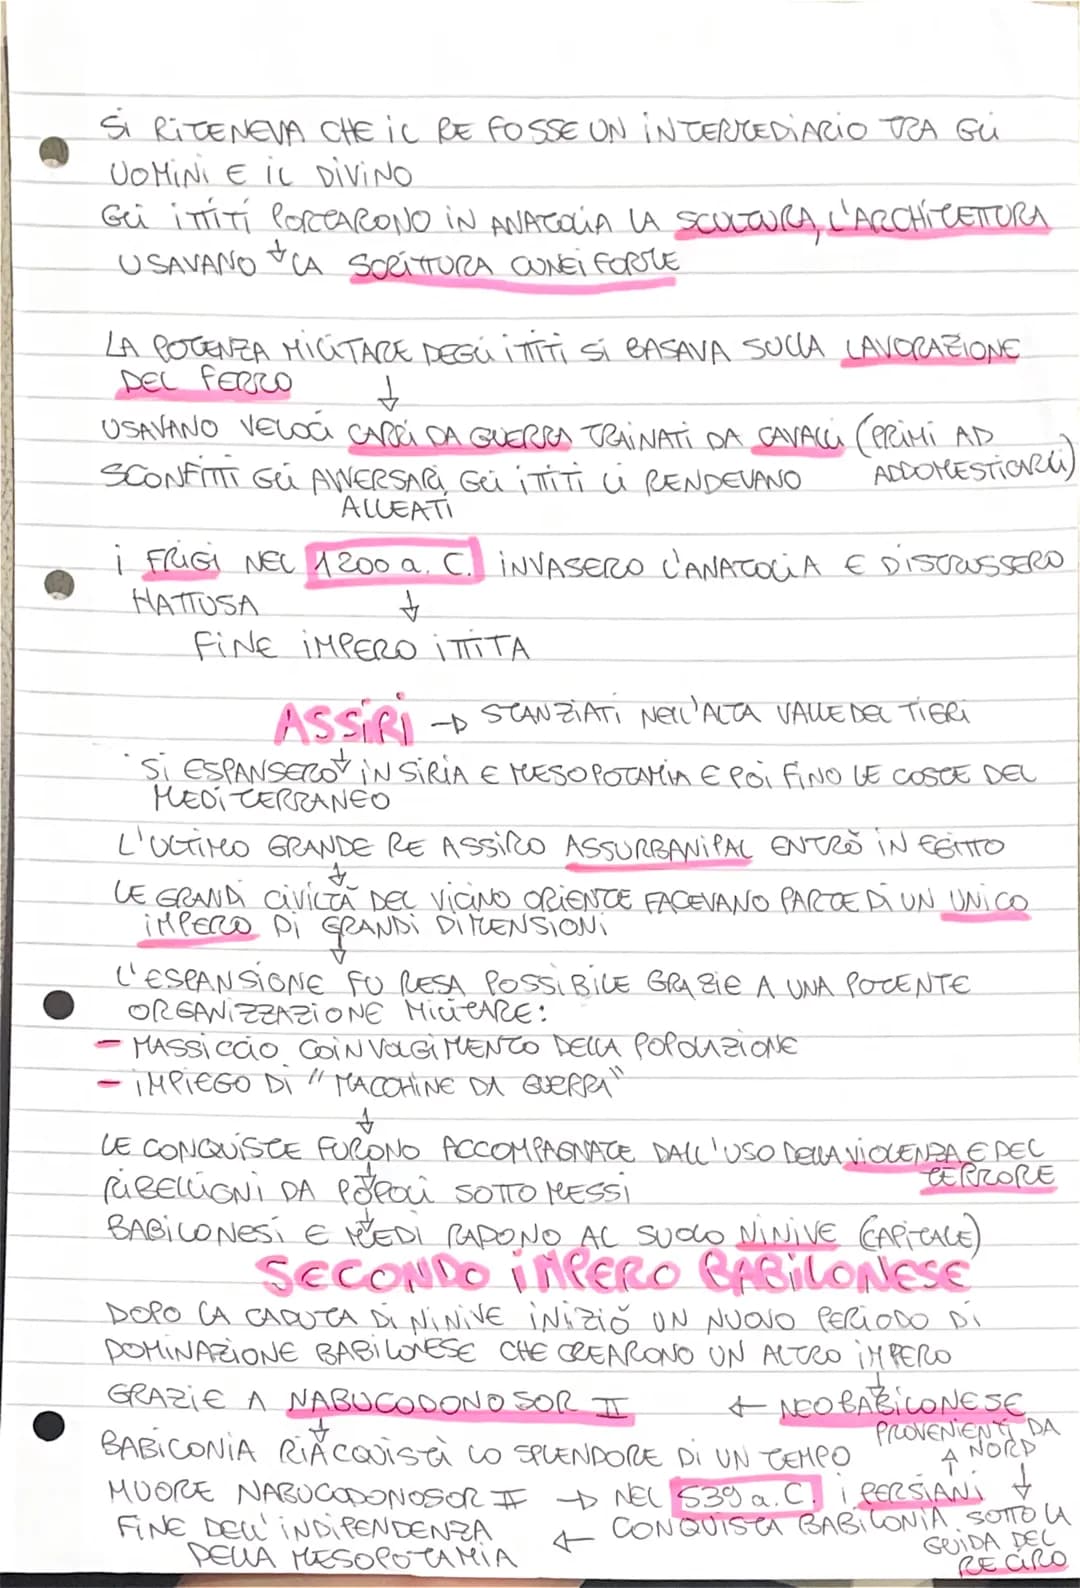 SI RITENEVA CHE IL RE FOSSE UN INTERMEDIARIO TRA GLI
UOMINI E IL DIVINO
GLI ITTITI PORTARONO IN ANATOLIA LA SCULTURA, L'ARCHITETTURA
USAVANO ↓ LA SCRITTURA CUNEIFORME
LA POTENZA MILITARE DEGLI ITTITI SI BASAVA SULLA LAVORAZIONE
DEL FERRO ↓
USAVANO VELOCI CARRI DA GUERRA TRAINATI DA CAVALLI (PRIMI AD
ADDOMESTICARLI)
SCONFITTI GLI AVVERSARI, GLI ITTITI LI RENDEVANO
ALLEATI
I FRIGI NEL 1200 a.C. INVASERO L'ANATOLIA E DISTRUSSERO
HATTUSA ↓
FINE IMPERO ITTITA
ASSIRI → STANZIATI NELL'ALTA VALLE DEL TIGRI
SI ESPANSERO ↓ IN SIRIA E MESOPOTAMIA E POI FINO LE COSTE DEL
MEDITERRANEO
L'ULTIMO GRANDE RE ASSIRO ASSURBANIPAL ENTRÒ IN EGITTO
↓
LE GRANDI CIVILTÀ DEL VICINO ORIENTE FACEVANO PARTE DI UN UNICO
IMPERO DI GRANDI DIMENSIONI
↓
L'ESPANSIONE FU RESA POSSIBILE GRAZIE A UNA POTENTE
ORGANIZZAZIONE MILITARE:
- MASSICCIO COINVOLGIMENTO DELLA POPOLAZIONE
- IMPIEGO DI "MACCHINE DA GUERRA"
↓
LE CONQUISTE FURONO ACCOMPAGNATE DALL'USO DELLA VIOLENZA E DEL
TERRORE
↓
RIBELLIONI DA POPOLI SOTTOMESSI
↓
BABILONESI E MEDI RADONO AL SUOLO NINIVE (CAPITALE)
SECONDO IMPERO BABILONESE
DOPO LA CADUTA DI NINIVE INIZIÒ UN NUOVO PERIODO DI
DOMINAZIONE BABILONESE CHE CREARONO UN ALTRO IMPERO
↓
GRAZIE A NABUCODONOSOR II ← NEOBABILONESE
↓
PROVENIENTI DA
NORD
BABILONIA RIACQUISTÀ LO SPLENDORE DI UN TEMPO
MUORE NABUCODONOSOR II → NEL 539 a.C. I PERSIANI ↓
CONQUISTA BABILONIA SOTTO LA
GUIDA DEL
RE CIRO
FINE DELL'INDIPENDENZA ←
DELLA MESOPOTAMIA